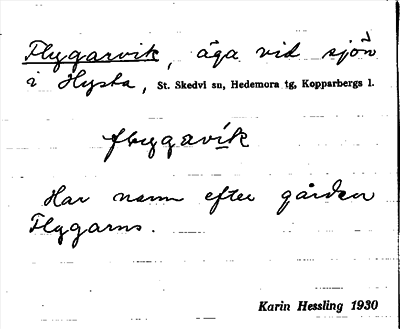 Flygarvik, äga vid sjön
i Hysta, St. Skedvi sn, Hedemora tg, Kopparbergs l.
flygavík
Har namn efter gården
Flygarns.
Karin Hessling 1930